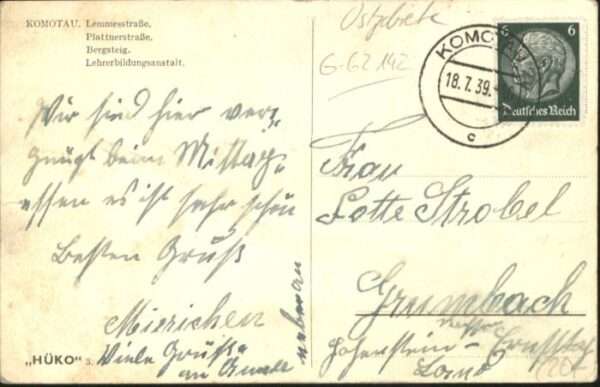 KOMOTAU. Lemmesstraße,
Plattnerstraße,
Bergsteig.
Lehrerbildungsanstalt.
Ostgebiete
G-GZ 142
KOMOTAU
18.7.39.
c
6 6
Deutsches Reich
Wir sind hier ver=
gnügt beim Mittag=
essen es ist sehr schön
besten Gruß
Mierichen
Viele Grüße
an
Frau
Lotte Strobel
Grumbach
Hohenstein-Ernstthal
Land
"HÜKO"